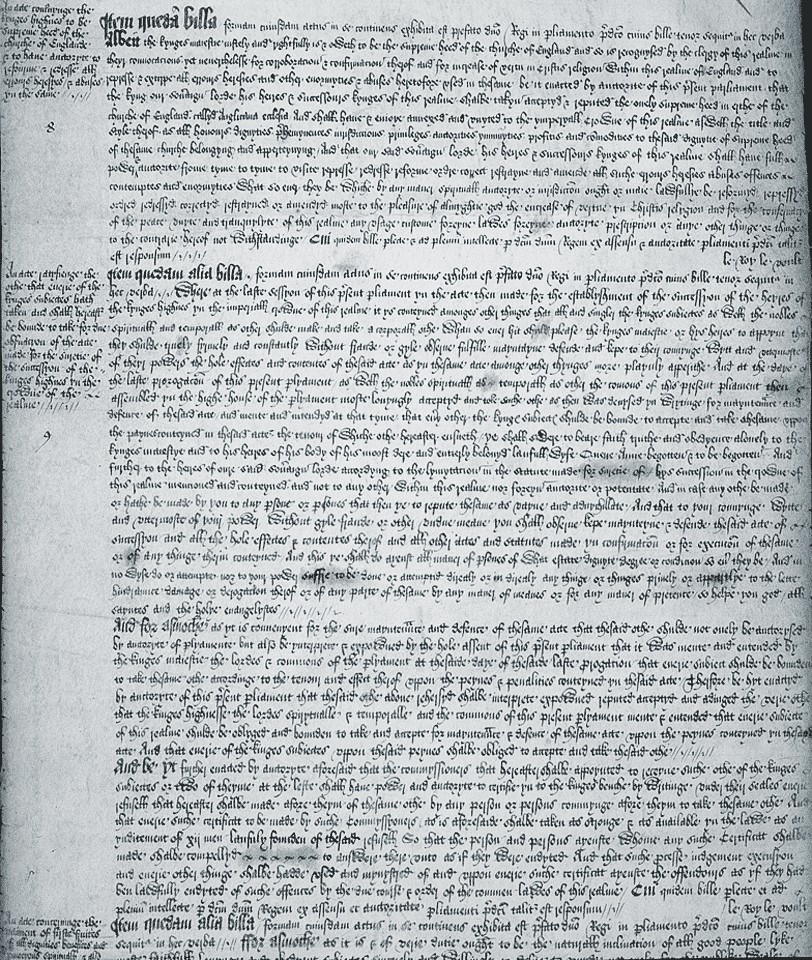 An acte concernynge the
kynges highnes to be
supreme heed of the
churche of Englande
& to have auctoryte to
refourme & redresse all
errours heresyes & abuses
yn the same
8
Item quedam billa formam cuiusdam actus in se continens exhibita est prefato domino Regi in parliamento predicto cuius bille tenor sequitur in hec verba
Albeit the kynges maiestie iustely and rightfully is & oweth to be the supreme heed of the churche of England and so is recognysed by the clergy of this realme in
theyr convocations yet neverthelesse for corroboration & confirmation therof and for increase of vertu in Cristis religion within this realme of England and to
represse & extyrpe all errours heresies and other enormyties & abuses heretofore used in thesame be it enacted by auctorite of this present parliament that
the kyng our soueraign lorde his heires & successours kynges of this realme shalbe taken accepted & reputed the onely supreme heed in erthe of the
churche of England called Anglicana ecclesia And shall have & enioye annexed and unyted to the ymperyall crowne of this realme aswell the title and
style therof as all honours dignyties prehemynences iurisdictions privileges auctorities ymmunyties profitis and commodities to thesaid dignyte of supreme heed
of thesame churche belongyng and apperteynyng And that our said soueraign lorde his heires & successours kynges of this realme shall have full
power & auctorite from tyme to tyme to visite represse redresse reforme ordre correct restrayne and amende all suche errours heresies abuses offences
contemptes and enormyties what so ever they be whiche by any maner spirituall auctorite or iurisdiction ought or maie lawfully be reformed repressed
ordred redressed corrected restrayned or amended moste to the pleasure of almyghtie god the encrease of vertue yn Christis religion and for the conservacion
of the peace unyte and tranquylyte of this realme any usage custome foreyne lawes foreyne auctorite prescription or anye other thinge or thinges
to the contrarie hereof not withstandinge Cui quidem bille perlecte & ad plenum intellecte per dictum dominum Regem ex assensu & auctoritate parliamenti predicti taliter
est responsum le Roy le veult
An acte
othe that euerie of the
kynges subiectes hath
taken and shall hereaft
be bounde to take for due
obseruation of the acte
made for the suretie of
the succession of the
kynges highnes yn the
crowne of the
realme
9
Item quedam alia billa formam cuiusdam actus in se continens exhibita est prefato domino Regi in parliamento predicto cuius bille tenor sequitur in
hec verba Where at the laste session of this present parliament yn the acte then made for the establyshment of the succession of the heyres of
the kynges highnes yn the imperiall crowne of this realme it ys conteyned amonges other thinges that all and singler the kynges subiectes as well the nobles
spirituall and temporall as other shulde make and take a corporall othe whan so ever hit shuld please the kynges maiestie or hys heires to appoynt that
they shulde truely fyrmely and constantly without fraude or gyle observe fulfille maynteyne defende and kepe to their connynge wytt and uttermoste
of theyr powers the hole effectes and contentes of thesaid acte as yn thesame acte amonge other thynges more playnly apperith And at the daye of
the laste prorogacion of this present parliament as well the nobles spirituall & temporall as other the comons of this present parliament then
assembled yn the highe house of the parliament moste lovyngly accepted and toke suche othe as then was devysed yn writinge for mayntenance and
defence of thesaid acte and mente and intended at that tyme that every other the kynges subiectes shulde be bounde to accepte and take thesame uppon
the paynes conteyned in thesaid acte the tenour of whiche othe hereafter ensueth ye shall swere to beare faith truthe and obedyence alonely to the
kynges maiestye and to his heires of his body of his most dere and entierly belovyd laufull wyfe Quene Anne begotten & to be begotten And
further to the heires of oure said soueraign lorde accordyng to the lymytacion in the statute made for suretie of hys succession in the crowne of
this realme mencioned and conteyned and not to any other within this realme nor foreyn auctorite or potentate And in case any othe be made
or hathe be made by you to any persone or persones that then ye to repute thesame as vayne and adnychilate And that to your connynge wytte
and uttermoste of your power without gyle fraude or other undue meane you shall observe kepe maynteyne & defende thesaid acte of
succession and all the hole effectes & contentes therof and all other actes and statutes made yn confirmacion or for execution of thesame
or of any thinge therin conteyned And this ye shall do ayenst all maner of persones of what estate dignyte degree or condicion so ever they be And in
no wyse do or attempte nor to your power suffre to be done or attempted directly or indirectly any thinge or thinges prively or appartlye to the lette
hindrance damage or derogacion therof or of any parte of thesame by any maner of meanes or for any maner of pretence so helpe you god all
sayntes and the holye evangelystes
And for asmoche as yt is convenyent for the sure mayntenance and defence of thesame acte that thesaid othe shulde not onely be auctorysed
by auctoryte of parlyamente but also be interpreted & expowned by the hole assent of this present parliament that it was mente and entended by
the kinges maiestie the lordes & commons of the parlyament at thesaide daye of thesaide laste prorogation that euerie subiect shulde be bounden
to take thesame othe accordinge to the tenour and effect therof uppon the peynes & penalities conteyned yn thesaid acte Therfore be hyt enacted
by auctoryte of this present parliament that thesaid othe above rehersed shalbe interpreted expowned reputed accepted and adiuged the verie othe
that the kinges highnesse the lordes spirituall & temporalle and the commons of this present parlyament mente & entended that euerie subiecte
of this realme shulde be oblyged and bounden to take and accepte for mayntenance & defence of thesame acte uppon the peynes conteyned yn thesaid
acte And that euerie of the kinges subiectes uppon thesaid peynes shalbe obliged to accepte and take thesaid othe
And be yt further enacted by auctoryte aforesaid that the commyssioners that hereafter shalbe appoynted to receyve suche othe of the kinges
subiectes or two of theyme at the leiste shall have power and auctoryte to certifie yn to the kinges benche by writinge under their seales euerie
refusell that hereafter shalbe made afore theym of thesame othe by any person or persons commynge afore theym to take thesame othe And
that euerie suche certificat to be made by suche Commyssioners as is aforesaide shalbe taken as stronge & as available yn the lawe as an
inditement of xij men laufully founden of thesaid refusell So that the person and persons ayenste whome any suche Certificat shalbe
made shalbe compellyd to answere there unto as if they were endyted And that suche processe iudgement execusyon
and euerie other thinge shalbe hadde used and mynystred of and uppon euerie suche certificat ayenste the offendours as yf they had
ben laufully endyted of suche offences by the due course & order of the commen lawes of this realme Cui quidem bille perlecte et ad
plenum intellecte per dictum dominum Regem ex assensu et auctoritate parliamenti predicti taliter est responsum le Roy le veult
An acte concernynge the
paiment of firste fruites
Item quedam alia billa formam cuiusdam actus in se continens exhibita est prefato domino Regi in parliamento predicto cuius bille tenor
sequitur in hec verba ffor asmoche as it is & of verie dutie ought to be the naturall inclination of all good people lyke